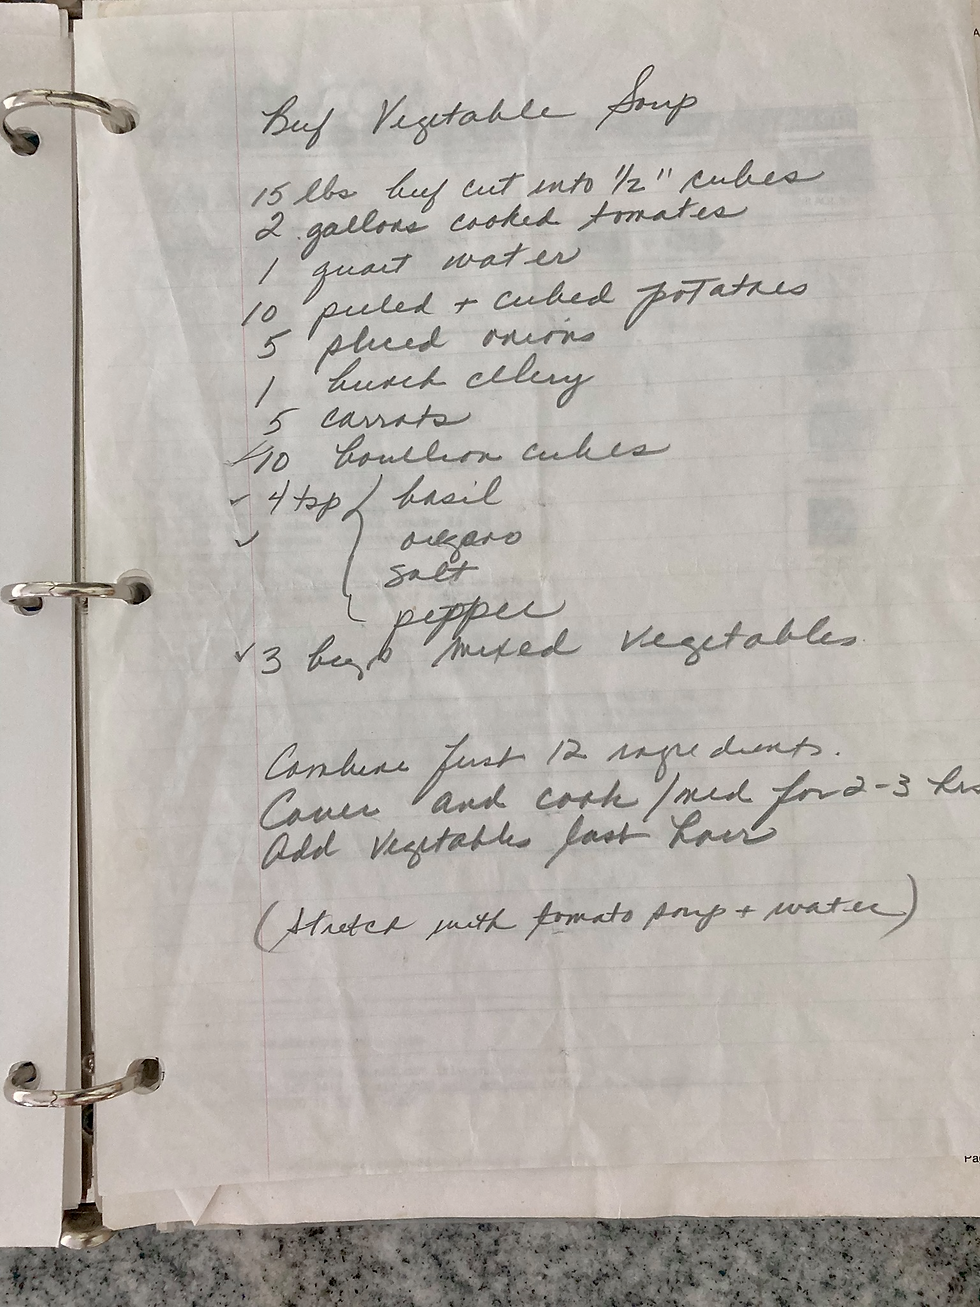 Beef Vegetable Soup
15 lbs beef cut into 1/2" cubes
2 gallons cooked tomatoes
1 quart water
10 peeled + cubed potatoes
5 sliced onions
1 bunch celery
5 carrots
✓10 boullion cubes
✓ 4 tsp { basil
✓ oregano
salt
pepper
✓ 3 bags mixed vegetables
Combine first 12 ingredients.
Cover and cook /med for 2-3 hrs
Add vegetables last hour
(Stretch with tomato soup + water)